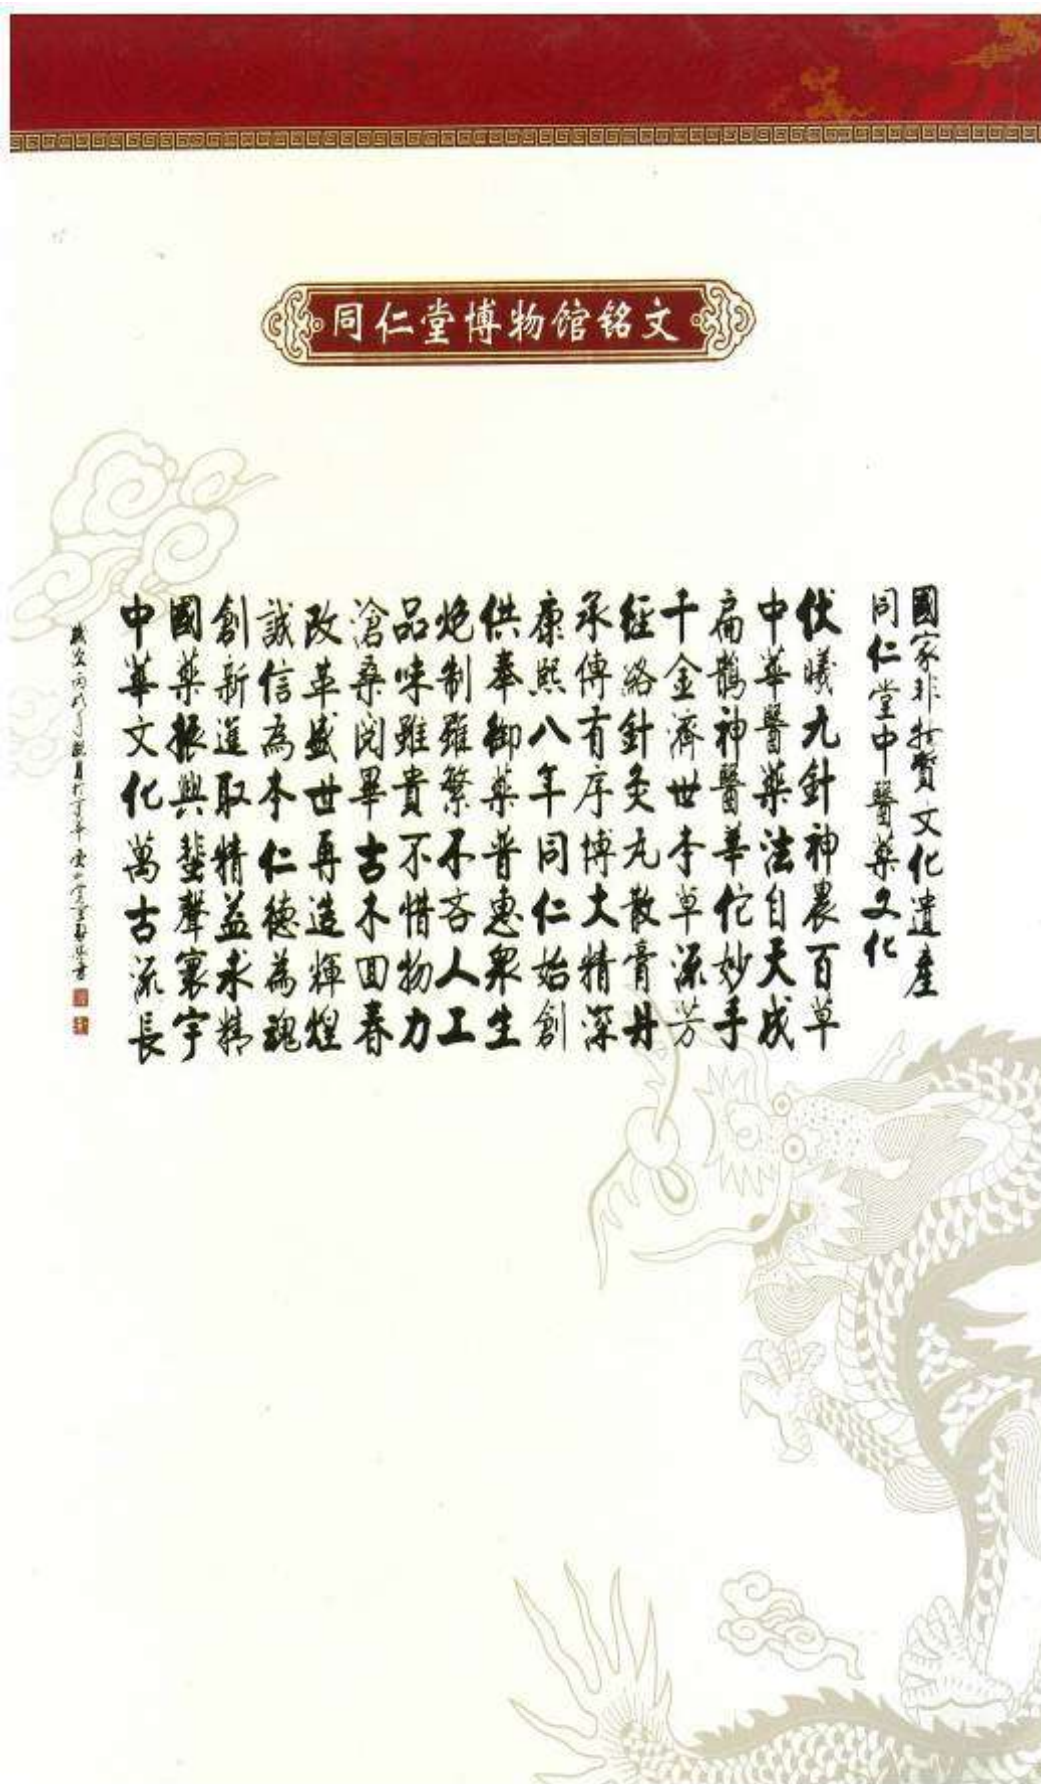 同仁堂博物馆铭文
國家非物質文化遺產
同仁堂中醫藥文化
伏曦九針神農百草
中華醫藥法自天成
扁鵲神醫華佗妙手
千金濟世本草流芳
經絡針灸丸散膏丹
承傳有序博大精深
康熙八年同仁始創
供奉御藥普惠眾生
炮制雖繁不吝人工
品味雖貴不惜物力
滄桑閱畢古木回春
改革盛世再造輝煌
誠信為本仁德為魂
創新進取精益求精
國藥振興蜚聲寰宇
中華文化萬古流長